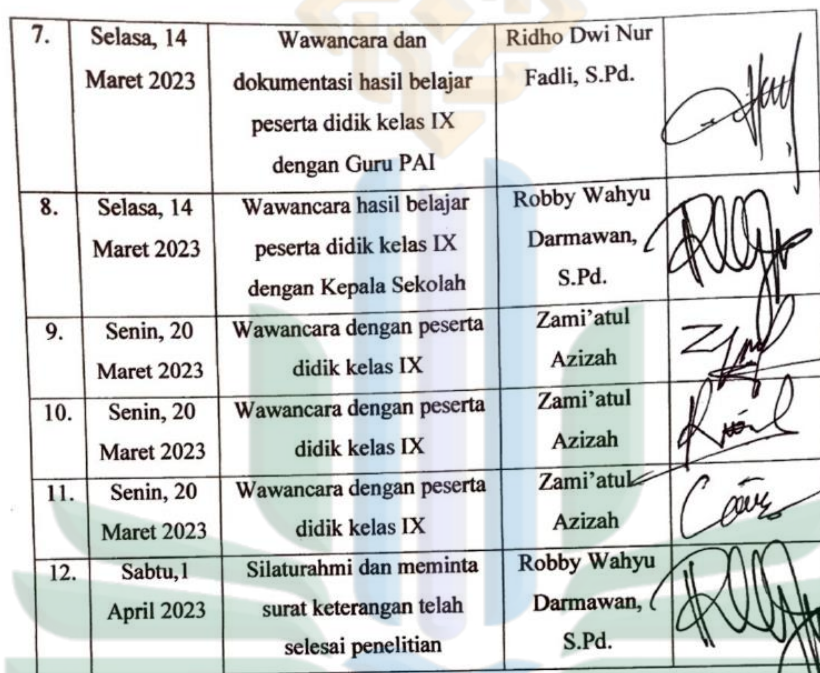 7.
Selasa, 14
Maret 2023
Wawancara dan
dokumentasi hasil belajar
peserta didik kelas IX
dengan Guru PAI
Ridho Dwi Nur
Fadli, S.Pd.
8.
Selasa, 14
Maret 2023
Wawancara hasil belajar
peserta didik kelas IX
dengan Kepala Sekolah
Robby Wahyu
Darmawan,
S.Pd.
9.
Senin, 20
Maret 2023
Wawancara dengan peserta
didik kelas IX
Zami'atul
Azizah
10.
Senin, 20
Maret 2023
Wawancara dengan peserta
didik kelas IX
Zami'atul
Azizah
11.
Senin, 20
Maret 2023
Wawancara dengan peserta
didik kelas IX
Zami'atul
Azizah
12.
Sabtu,1
April 2023
Silaturahmi dan meminta
surat keterangan telah
selesai penelitian
Robby Wahyu
Darmawan,
S.Pd.